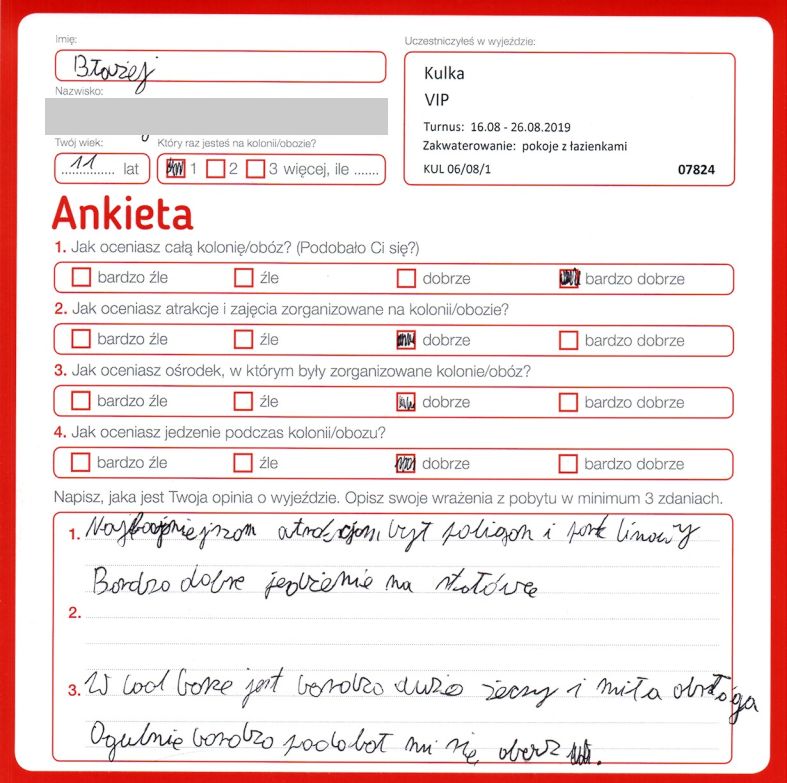 Imię:
Błażej
Nazwisko:
Twój wiek:
11 lat
Który raz jesteś na kolonii/obozie?
1 2 3 więcej, ile .......
Uczestniczyłeś w wyjeździe:
Kulka
VIP
Turnus: 16.08 - 26.08.2019
Zakwaterowanie: pokoje z łazienkami
KUL 06/08/1 07824
Ankieta
1. Jak oceniasz całą kolonię/obóz? (Podobało Ci się?)
bardzo źle źle dobrze bardzo dobrze
2. Jak oceniasz atrakcje i zajęcia zorganizowane na kolonii/obozie?
bardzo źle źle dobrze bardzo dobrze
3. Jak oceniasz ośrodek, w którym były zorganizowane kolonie/obóz?
bardzo źle źle dobrze bardzo dobrze
4. Jak oceniasz jedzenie podczas kolonii/obozu?
bardzo źle źle dobrze bardzo dobrze
Napisz, jaka jest Twoja opinia o wyjeździe. Opisz swoje wrażenia z pobytu w minimum 3 zdaniach.
1. był poligon i park linowy
Bardzo dobre jedzenie na stołówce
2.
3. W cool barze jest bardzo dużo żeczy i miła obsłóga
Ogulnie bardzo podobał mi się